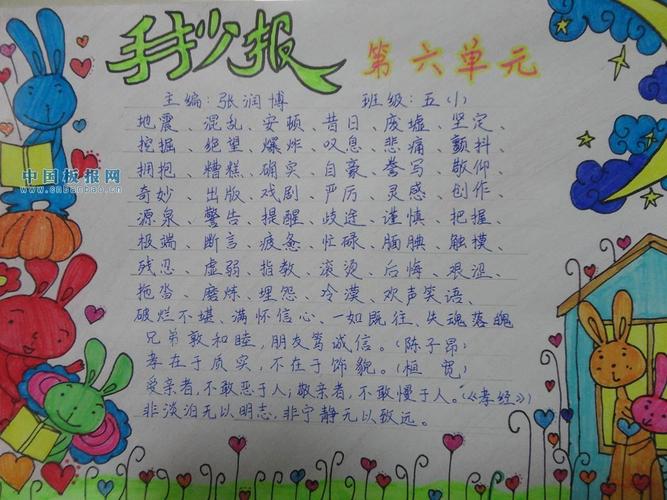 手抄报
第六单元
主编:张润博 班级:五(1)
地震、混乱、安顿、昔日、废墟、坚定、
挖掘、绝望、爆炸、叹息、悲痛、颤抖、
拥抱、糟糕、确实、自豪、誊写、敬仰
奇妙、出版、戏剧、严厉、灵感、创作、
源泉、警告、提醒、歧途、谨慎、把握、
极端、断言、疲惫、忙碌、腼腆、触摸、
残忍、虚弱、指教、滚烫、后悔、艰涩、
拖沓、磨炼、埋怨、冷漠、欢声笑语、
破烂不堪、满怀信心、一如既往、失魂落魄
兄弟敦和睦,朋友笃诚信。(陈子昂)
孝在于质实,不在于饰貌。(桓宽)
爱亲者,不敢恶于人;敬亲者,不敢慢于人。(《孝经》)
非淡泊无以明志,非宁静无以致远。
中国板报网
www.cnbanbao.cn